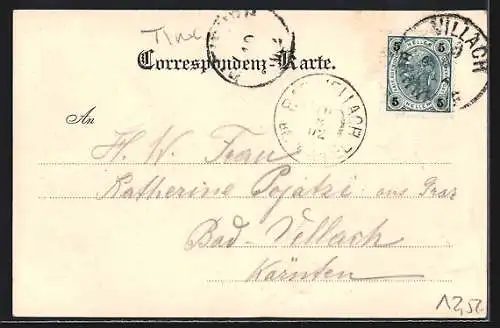 Correspondenz-Karte.
VILLACH
5 5
HELLER
5 5
BAD VELLACH
An
H. W. Frau
Katherine Pojatzi aus Graz
Bad-Vellach
Kärnten